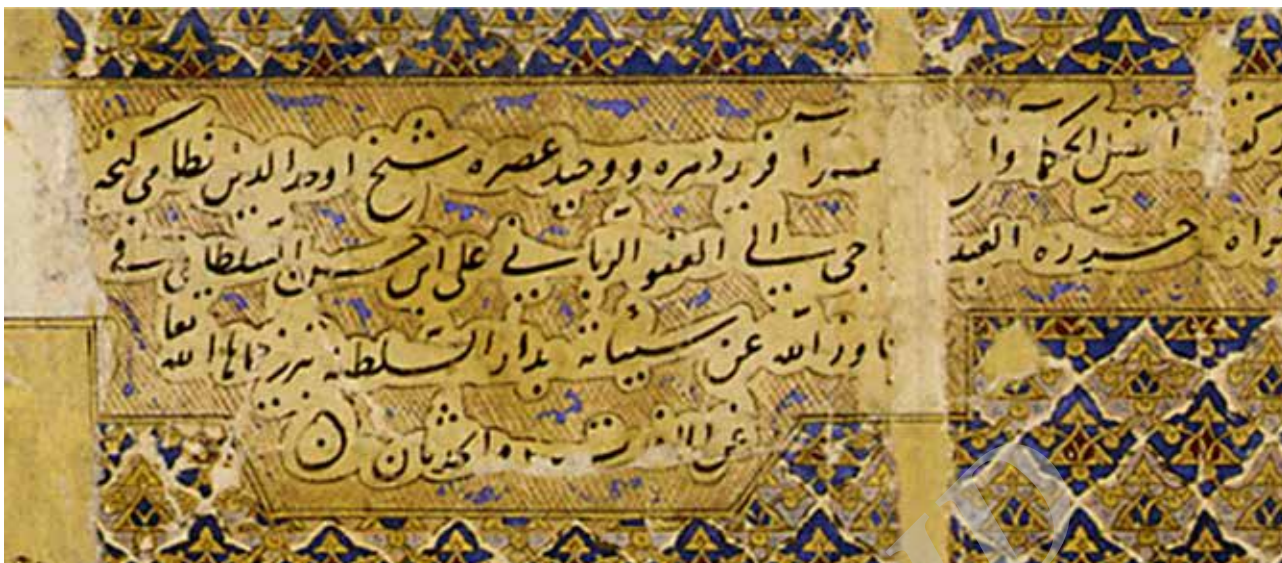 افضل الحکما وا فرید دهره و وحید عصره شیخ اوحد الدین نظامی گنجه
حرره العبد جی الی العفو الربانی علی ابن حسین السلطانی فی
اوز الله عن سیئاته بدار السلطنه تبریز حماها الله تعا
عن الافت والحدثان